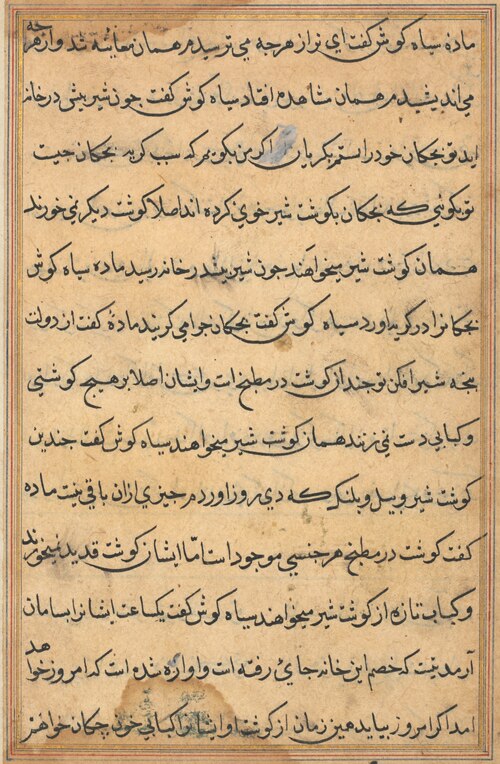 ماده سیاه کوش کفت ای نر از هرجه می ترسیدم همان معاینه شد و از هرجه
می اندیشیدم همان مشاهده افتاد سیاه کوش کفت جون شیر بیشی در خانه
اید تو بجکان خود را ستم بکریان اکر من بکویم که سبب کریه بجکان جیست
تو بکوئی که بجکان بکوشت شیر خوی کرده اند اصلا کوشت دیکر نمی خورند
همان کوشت شیر میخواهند جون شیر بیشه در خانه رسید ماده سیاه کوش
بجکانرا در کریه اورد سیاه کوش کفت بجکان جرا می کریند ماده کفت از دولت
بجه شیر افکن تو جندان کوشت در مطبخ است و ایشان اصلا بر هیج کوشتی
و کبابی دست نمی زنند هماز کوشت شیر میخواهند سیاه کوش کفت جندین
کوشت شیر و پیل و پلنک که دی روز اوردم جیزی ازان باقی نیست ماده
کفت کوشت در مطبخ هر جنسی موجود است اما ایشان کوشت قدید نمیخورند
و کباب تازه از کوشت شیر میخواهند سیاه کوش کفت یکساعت ایشانرا بسامان
آر مدتیست که خصم این خانه جائی رفته است و اواره شده است که امروز خواهد
امد اکر امروز بیاید همین زمان از کوشت او ایشانرا کبابی خود بجکان خواهند